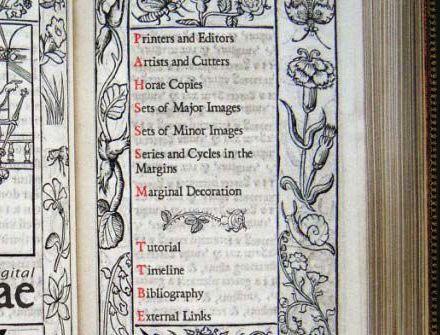 Printers and Editors
Artists and Cutters
Horae Copies
Sets of Major Images
Sets of Minor Images
Series and Cycles in the
Margins
Marginal Decoration
Tutorial
Timeline
Bibliography
External Links
igital
ae